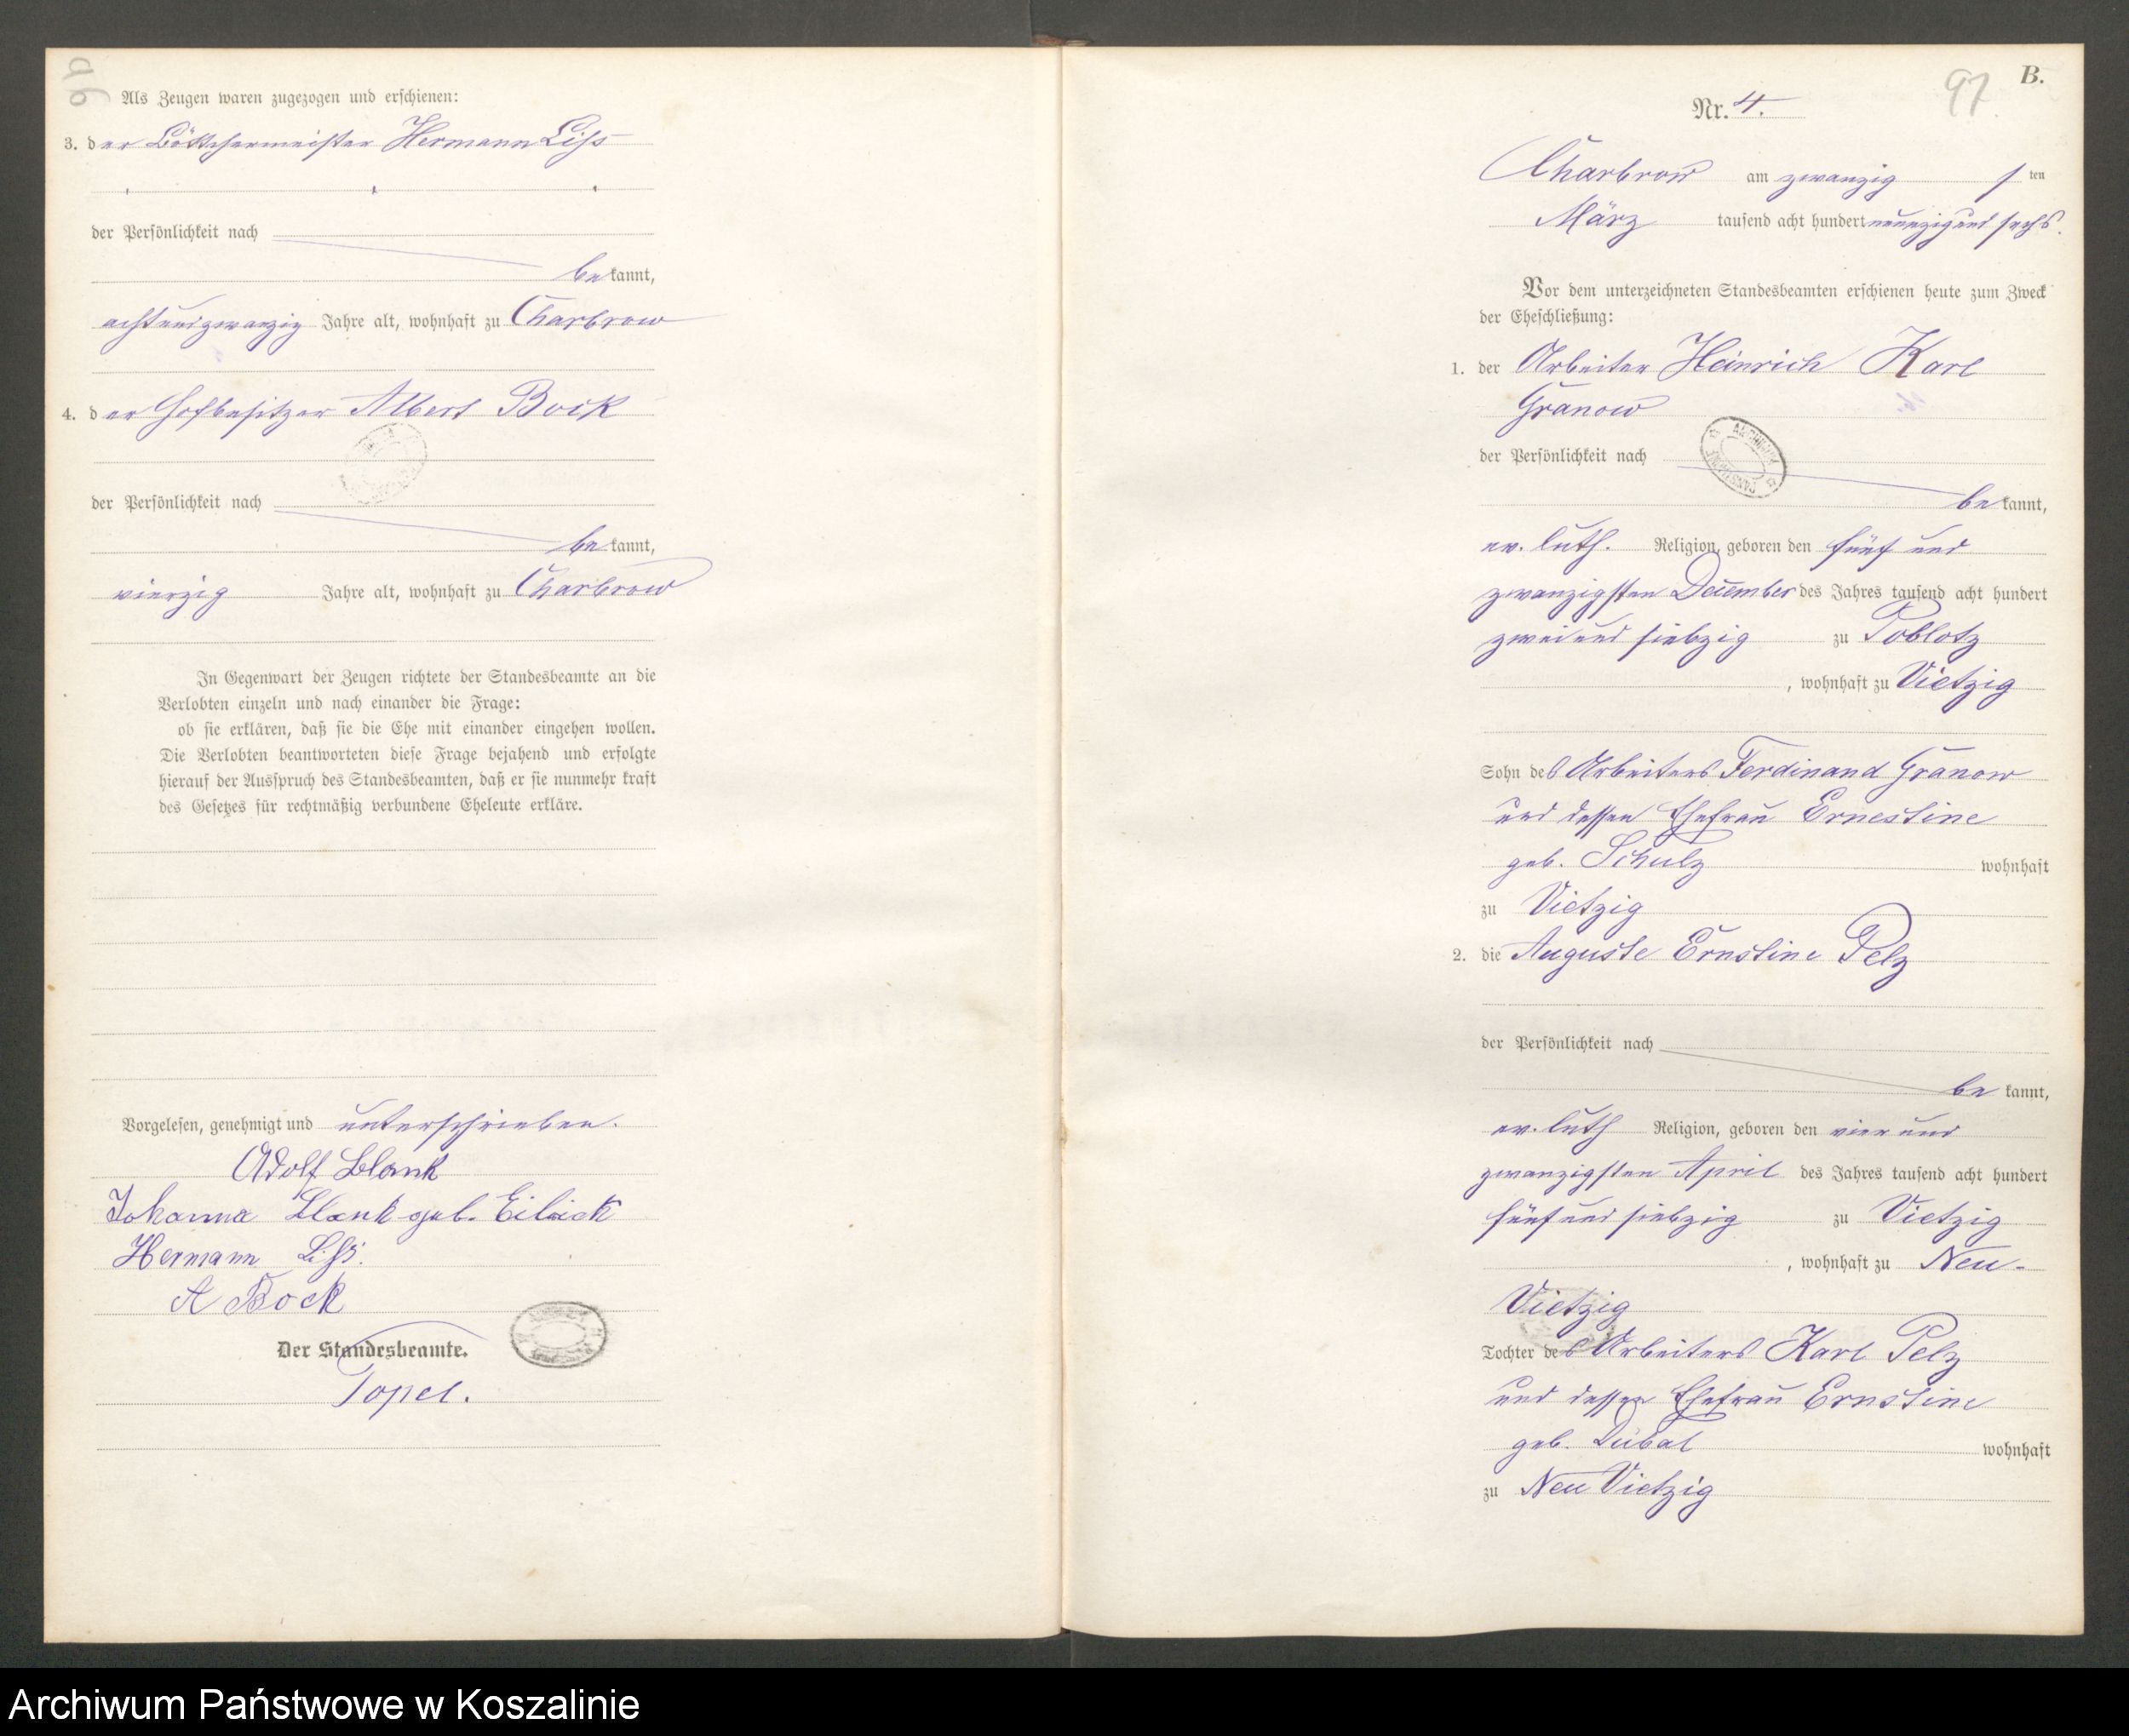 96
Als Zeugen waren zugezogen und erschienen:
3. der Böttchermeister Hermann Liss
der Persönlichkeit nach
bekannt,
achtundzwanzig Jahre alt, wohnhaft zu Charbrow
4. der Hofbesitzer Albert Bock
der Persönlichkeit nach
bekannt,
vierzig Jahre alt, wohnhaft zu Charbrow
In Gegenwart der Zeugen richtete der Standesbeamte an die
Verlobten einzeln und nach einander die Frage:
ob sie erklären, daß sie die Ehe mit einander eingehen wollen.
Die Verlobten beantworteten diese Frage bejahend und erfolgte
hierauf der Ausspruch des Standesbeamten, daß er sie nunmehr kraft
des Gesetzes für rechtmäßig verbundene Eheleute erkläre.
Vorgelesen, genehmigt und unterschrieben.
Adolf Blank
Johanna Blank geb. Eilrick
Hermann Liss.
A Bock
Der Standesbeamte.
Topel.
97
B.
Nr. 4.
Charbrow am zwanzig s ten
März tausend acht hundert neunzig und sechs.
Vor dem unterzeichneten Standesbeamten erschienen heute zum Zweck
der Eheschließung:
1. der Arbeiter Heinrich Karl
Granow
der Persönlichkeit nach
bekannt,
ev. luth. Religion, geboren den fünf und
zwanzigsten December des Jahres tausend acht hundert
zwei und siebzig zu Poblotz
, wohnhaft zu Vietzig
Sohn des Arbeiters Ferdinand Granow
und dessen Ehefrau Ernestine
geb. Schulz wohnhaft
zu Vietzig
2. die Auguste Ernstine Pelz
der Persönlichkeit nach
bekannt,
ev. luth Religion, geboren den vier und
zwanzigsten April des Jahres tausend acht hundert
fünf und siebzig zu Vietzig
, wohnhaft zu Neu-
Vietzig
Tochter des Arbeiters Karl Pelz
und dessen Ehefrau Ernstine
geb. Dubal wohnhaft
zu Neu Vietzig
Archiwum Państwowe w Koszalinie